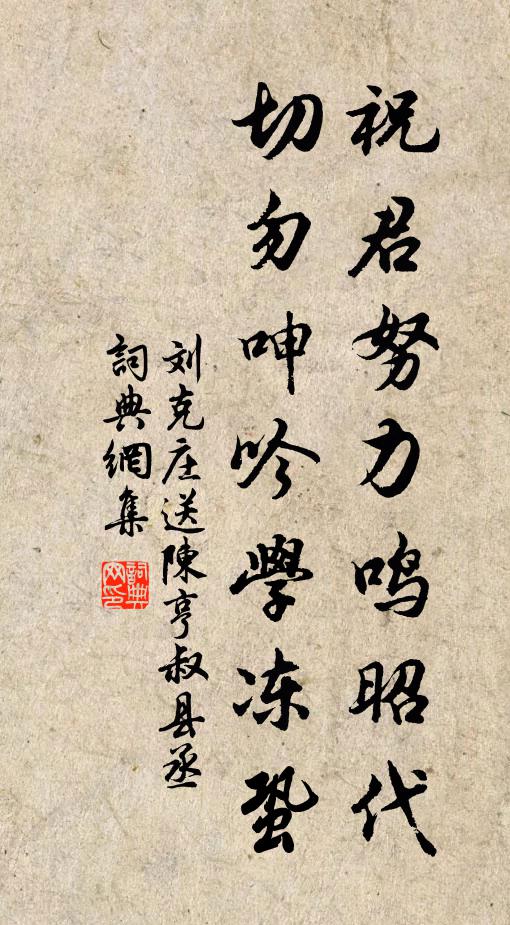 祝君努力鸣昭代
切勿呻吟学冻蛩
刘克庄送陳亨叔县丞
詞典網集
詞典网印